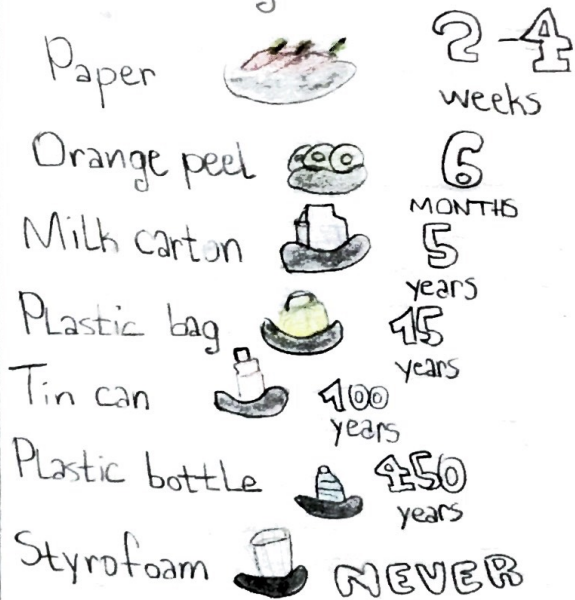 Paper 2-4
weeks
Orange peel 6
MONTHS
Milk carton 5
years
Plastic bag 15
years
Tin can 100
years
Plastic bottle 450
years
Styrofoam NEVER